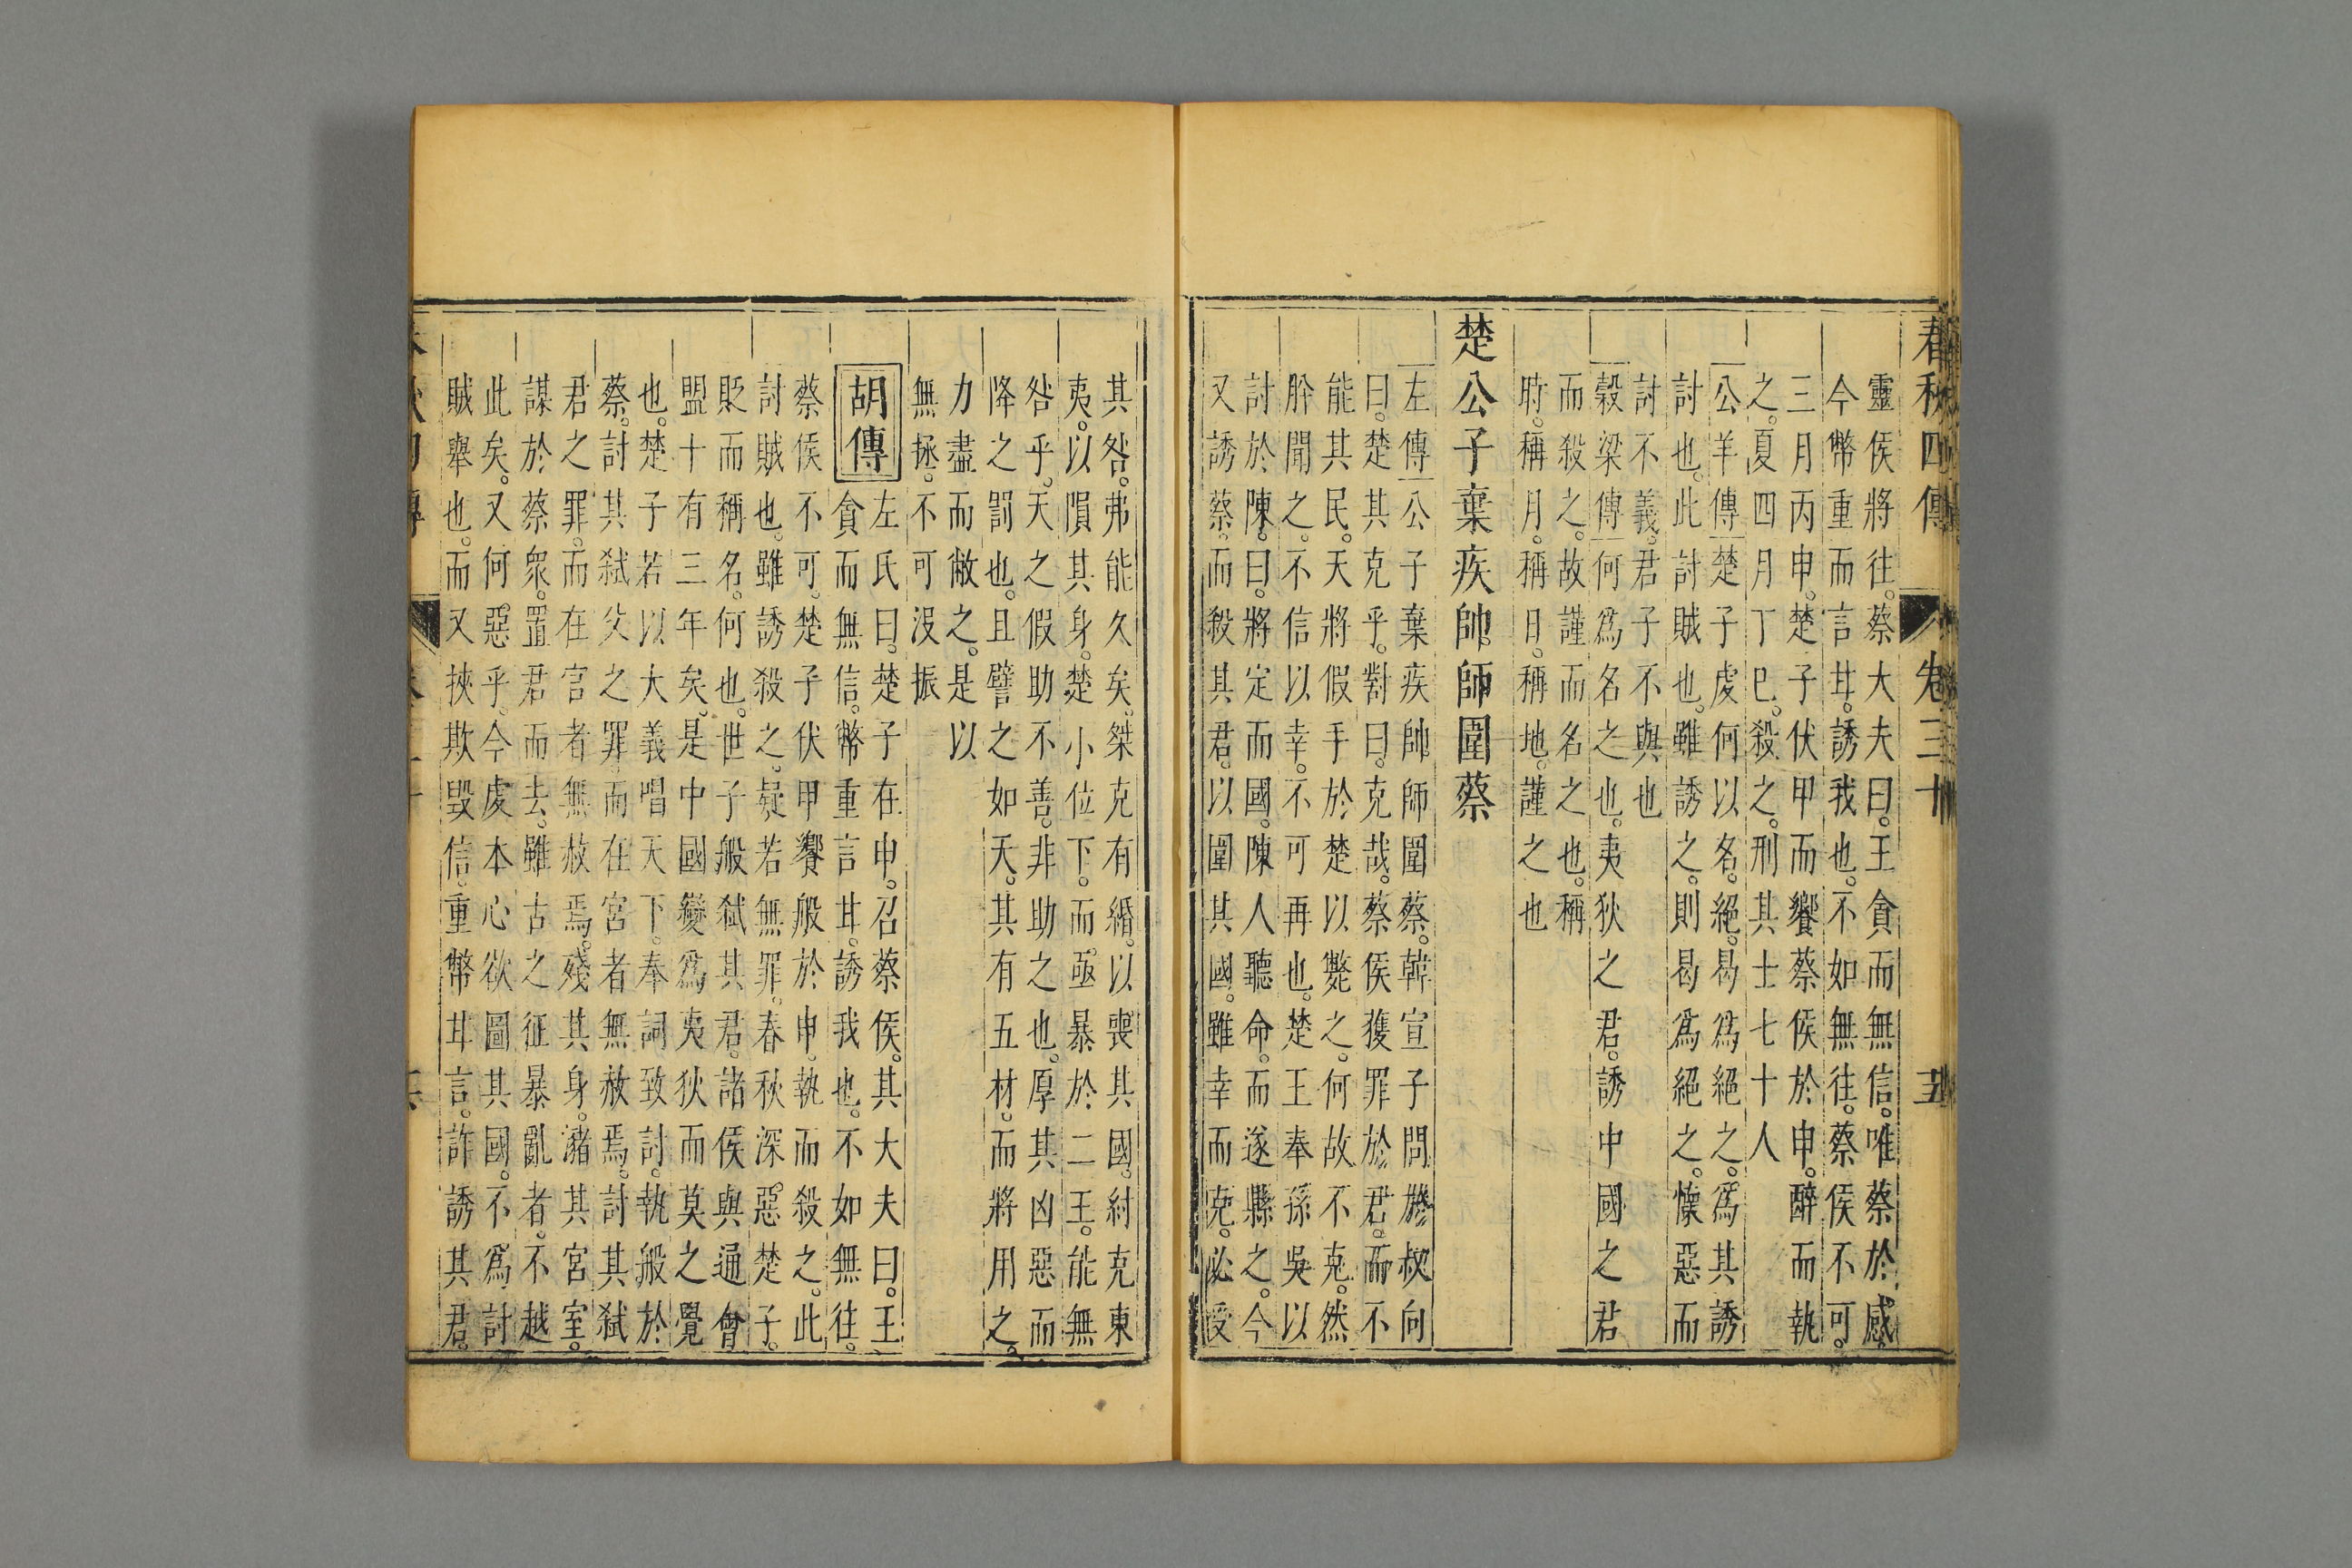 春秋四傳 卷三十 五
靈侯將往。蔡大夫曰。王貪而無信。唯蔡於感。
今幣重而言甘。誘我也。不如無往。蔡侯不可。
三月丙申。楚子伏甲而饗蔡侯於申。醉而執
之。夏四月丁巳。殺之。刑其士七十人
公羊傳楚子虔何以名。絕。曷為絕之。為其誘
討也。此討賊也。雖誘之。則曷為絕之。懷惡而
討不義。君子不與也
穀梁傳何為名之也。夷狄之君。誘中國之君
而殺之。故謹而名之也。稱
時。稱月。稱日。稱地。謹之也
楚公子棄疾帥師圍蔡
左傳公子棄疾帥師圍蔡。韓宣子問於叔向
曰。楚其克乎。對曰。克哉。蔡侯獲罪於君。而不
能其民。天將假手於楚以斃之。何故不克。然
肸聞之。不信以幸。不可再也。楚王奉孫吳以
討於陳。曰。將定而國。陳人聽命。而遂縣之。今
又誘蔡而殺其君。以圍其國。雖幸而克。必受
其咎。弗能久矣。桀克有緡。以喪其國。紂克東
夷。以隕其身。楚小位下。而亟暴於二王。能無
咎乎。天之假助不善。非助之也。厚其凶惡而
降之罰也。且譬之如天。其有五材。而將用之。
力盡而敝之。是以
無拯。不可沒振
胡傳 左氏曰。楚子在申。召蔡侯。其大夫曰。王
貪而無信。幣重言甘。誘我也。不如無往。
蔡侯不可。楚子伏甲饗般於申。執而殺之。此
討賊也。雖誘殺之。疑若無罪。春秋深惡楚子。
貶而稱名。何也。世子般弒其君。諸侯與通會
盟十有三年矣。是中國變為夷狄而莫之覺
也。楚子若以大義唱天下。奉詞致討。執般於
蔡。討其弒父之罪。而在宮者無赦焉。討其弒
君之罪。而在官者無赦焉。殘其身。瀦其宮室。
謀於蔡眾。置君而去。雖古之征暴亂者。不越
此矣。又何惡乎。今虔本心欲圖其國。不為討
賊舉也。而又挾欺毀信。重幣甘言。詐誘其君。